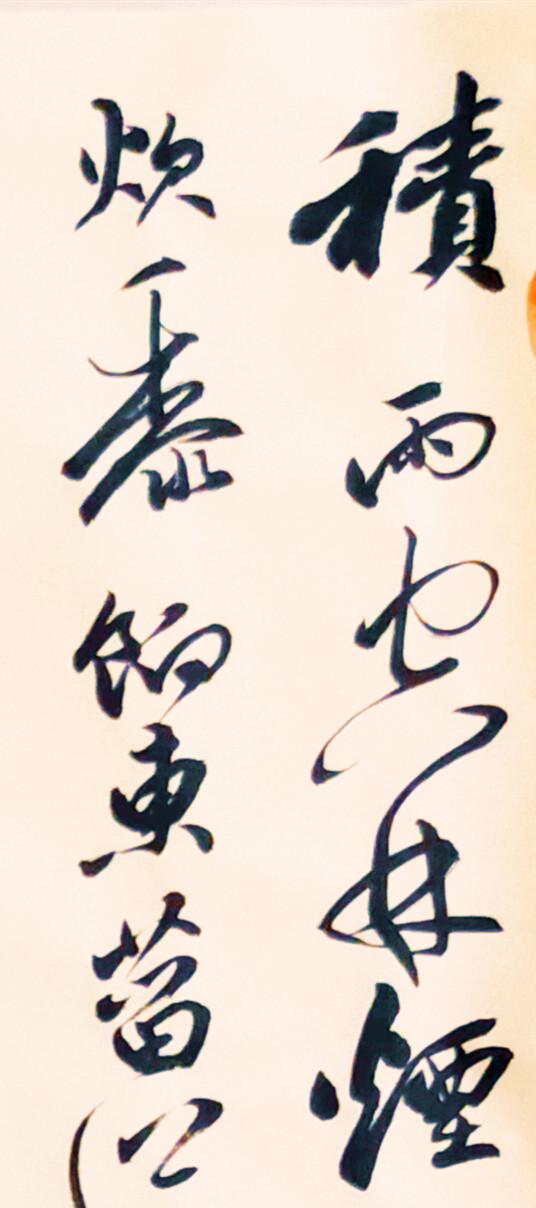 積雨空林煙
炊黍餉東菑